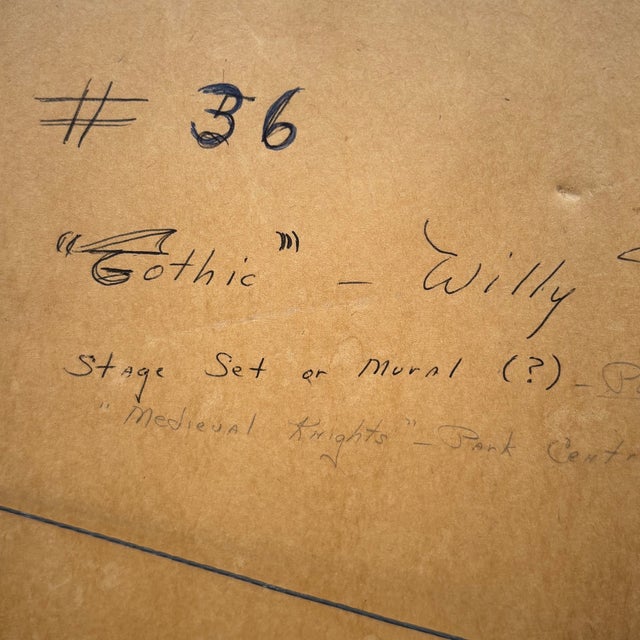 # 36
"Gothic" — Willy
Stage Set or Mural (?) –
"Medieval Knights" – Park